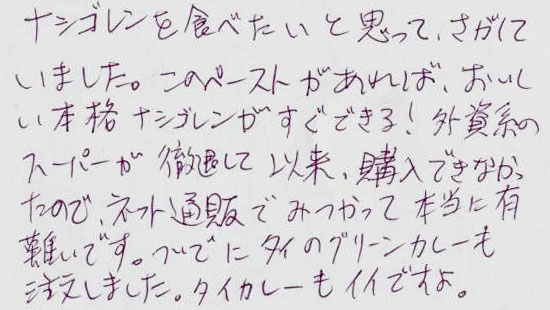 ナシゴレンを食べたいと思って、さがして
いました。このペーストがあれば、おいし
い本格ナシゴレンがすぐできる！外資系の
スーパーが徹退して以来、購入できなかっ
たので、ネット通販でみつかって本当に有
難いです。ついでにタイのグリーンカレーも
注文しました。タイカレーもイイですよ。